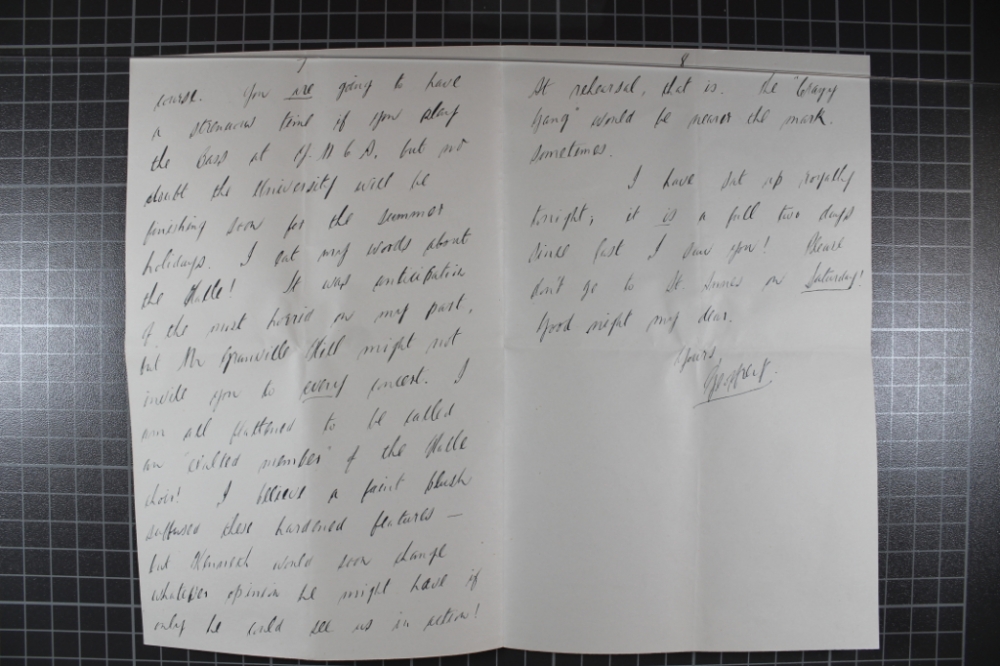 7
course. You are going to have
a strenuous time if you play
the Bass at Y.M.C.A. but no
doubt the University will be
finishing soon for the summer
holidays. I eat my words about
the Halle! It was anticipation
of the most horrid on my part,
but Mr Granville Hill might not
invite you to every concert. I
am all flattened to be called
an "exalted member" of the Halle
choir! I believe a faint blush
suffused these hardened features —
but Kenneth would soon change
whatever opinion he might have if
only he could see us in action!
8
At rehearsal, that is. The "Crazy
Gang" would be nearer the mark.
sometimes.
I have sat up royally
tonight; it is a full two days
since last I saw you! Please
don't go to St. Annes on Saturday!
Good night my dear.
Yours
Geoffrey.